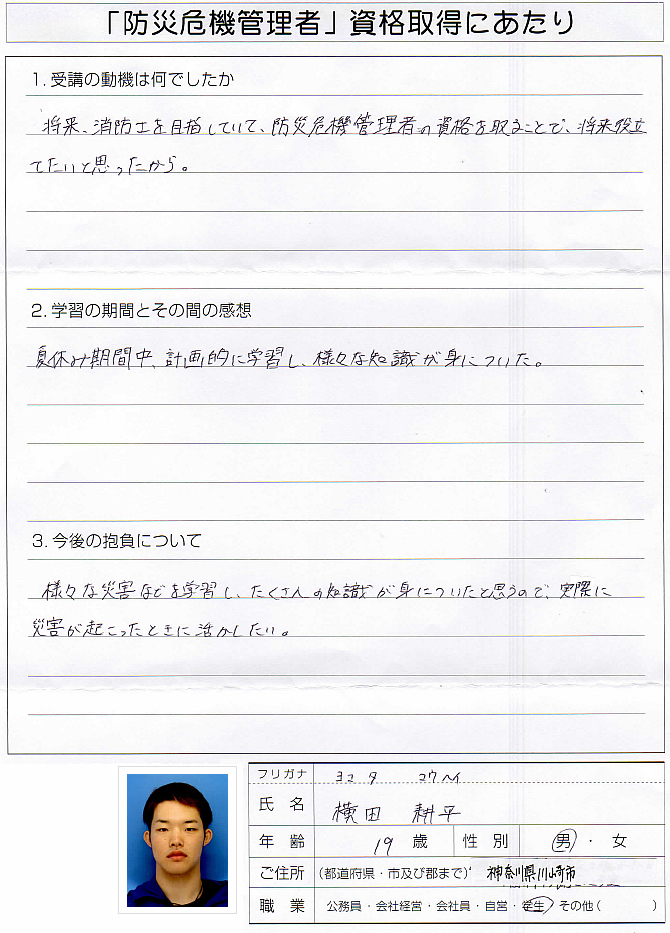 「防災危機管理者」資格取得にあたり
1. 受講の動機は何でしたか
将来、消防士を目指していて、防災危機管理者の資格を取ることで、将来役立
てたいと思ったから。
2. 学習の期間とその間の感想
夏休み期間中、計画的に学習し、様々な知識が身についた。
3. 今後の抱負について
様々な災害などを学習し、たくさんの知識が身についたと思うので、実際に
災害が起こったときに活かしたい。
フリガナ ヨコタ コウヘイ
氏 名 横田 耕平
年 齢 19 歳 性 別 男 ・ 女
ご住所 (都道府県・市及び郡まで) 神奈川県川崎市
職 業 公務員・会社経営・会社員・自営・学生・その他( )